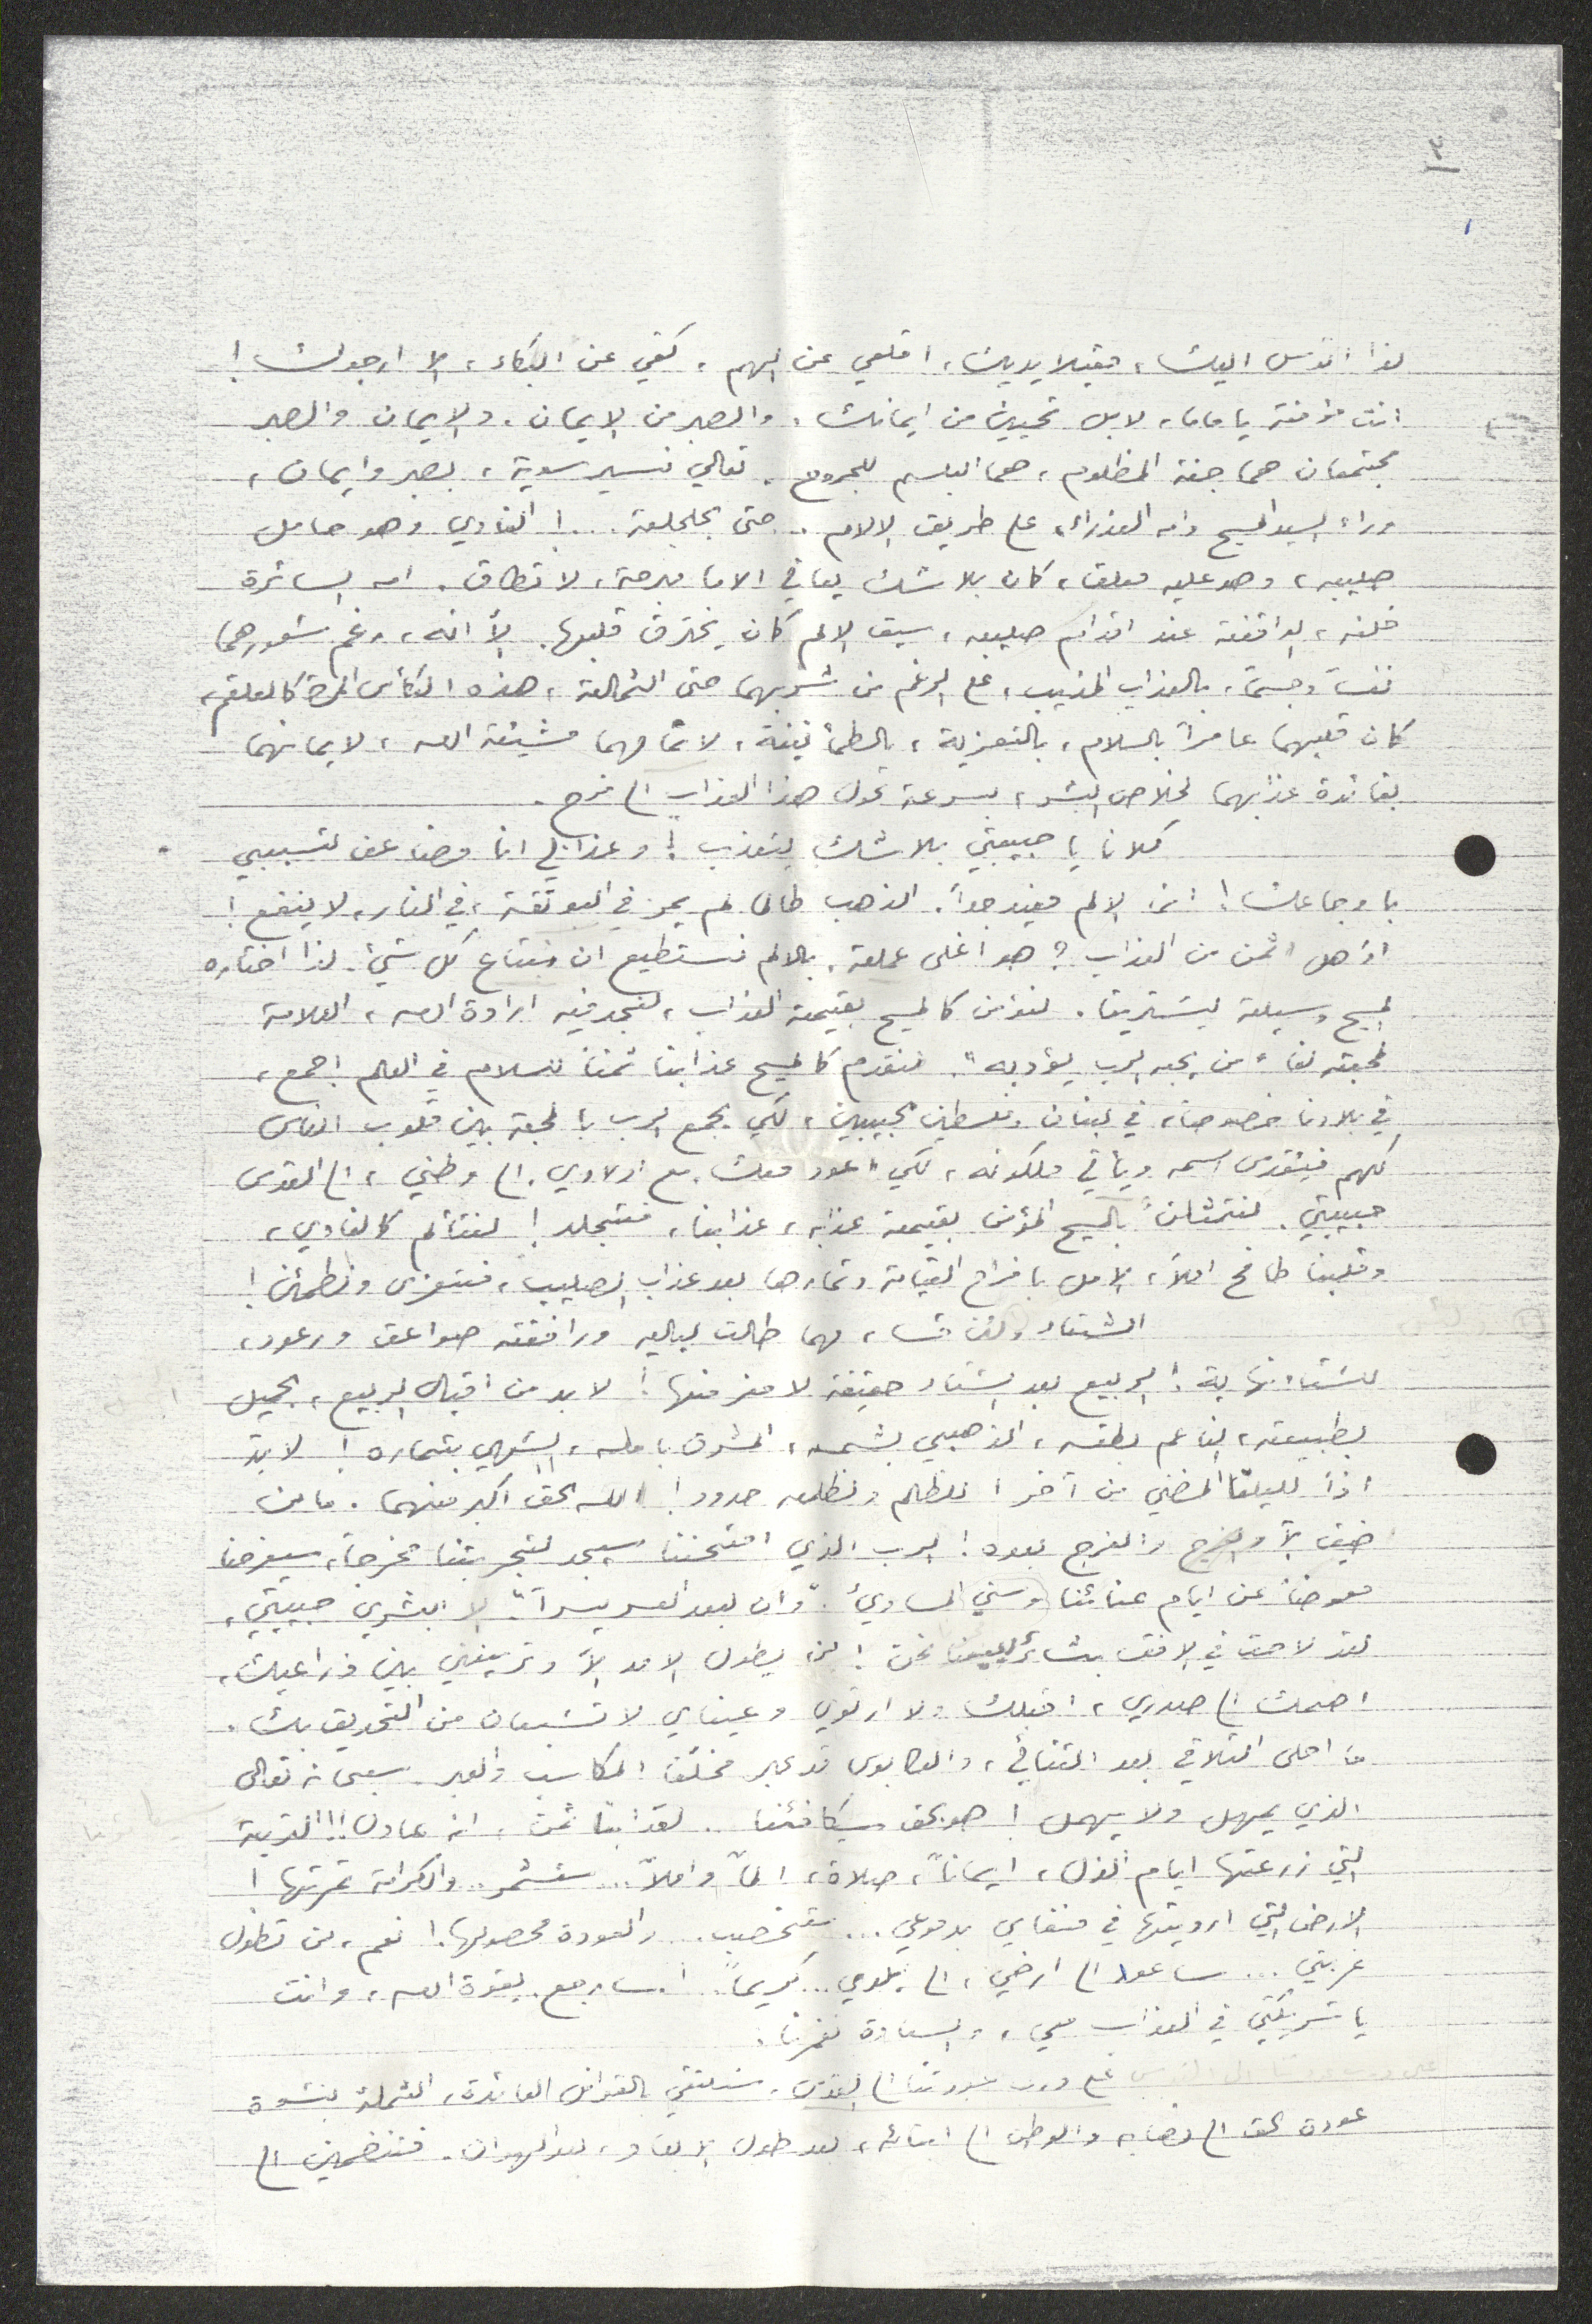 ٣
لذا اتوسل اليك، مقبلا يديك، اقلعي عن الهم، كفي عن البكاء، الا ارجوك!
انت مؤمنة يا ماما، لا بل تحيين من ايمانك. والصبر من الايمان. والايمان والصبر
مجتمعان هما جنة المظلوم، هما البلسم للجروح. تعالي نسير سوية، بصبر وايمان،
وراء السيد المسيح وامه العذراء، على طريق الالام. حتى الجلجلة...! الفادي وهو حامل
صليبه، وهو عليه معلق، كان بلا شك يعاني الاما مبرحة، لا تطاق. امه السائرة
خلفه، الواقفة عند اقدام صليبه، سيف الالم كان يخترق قلبها. الاّ انه، رغم شعورهما
نفساً وجسماً، بالعذاب المذيب، على الرغم من شربهما حتى الثمالة، هذه الكأس المرة كالعلقم،
كان قلبهما عامراً بالسلام، بالتعزية، بالطمأنينة، لاتمامهما مشيئة الله، لايمانهما
بفائدة عذابهما لخلاص البشر، بسرعة تحول هذا العذاب الى فرح.
كلانا يا حبيبتي بلا شك يتعذب! وعذابي انا مضاعف لتسببي
باوجاعك! انما الالم مفيد جداً. الذهب طالما لم يمر في البوتقة، في النار، لا ينفع!
اوَ هل اثمن من العذاب؟ هو اغلى عملة. بالالم نستطيع ان نبتاع كل شيء. لذا اختاره
المسيح وسيلة ليشترينا. لنؤمن كالمسيح بقيمة العذاب، لنجد فيه ارادة الله، العلامة
لمحبته لنا "من يحبه الرب يؤدبه". لنقدم كالمسيح عذابنا ثمناً للسلام في العالم اجمع،
في بلادنا خصوصاً، في لبنان وفلسطين الحبيبين، لكي يجمع الرب بالمحبة بين قلوب الناس
كلهم فيتقدس اسمه ويأتي ملكوته، لكي اعود معك، مع اولادي، الى وطني، الى القدس
حبيبتي. لنتمثلن بالمسيح المؤمن بقيمة عذابه، عذابنا، فنتجلد! لنتألم كالفادي،
وقلبنا طافح املاً، الامل بافراح القيامة وثمارها بعد عذاب الصليب، فنتعزى ونطمئن!
الشتاء وان قسا، مهما طالت لياليه ورافقته صواعق ورعود،
للشتاء نهاية! الربيع بعد الشتاء حقيقة لا مفر منها! لا بد من اقبال الربيع، الجميل
بطبيعته، الناعم بطقسه، الذهبي بشمسه، المشرق بامله، الشهي بثماره! لا بدّ
اذاً للبلاء المضني من آخر! للظلم وللظلمة حدود! الله الحق اكبر منهما. ما من
ضيق الاّ والفرج والفرج بعده! الرب الذي امتحننا سيجد لتجربتنا مخرجاً، سيفرحنا
معوضاً عن ايام عنائنا وسني المساوئ. "وان بعد العسر يسراً". الا ابشري حبيبتي،
لقد لاحت في الافق بشائر ربيعنا نحن! لن يطول الامد الاّ وترينني بين ذراعيك،
اضمك الى صدري، اقبلك ولا ارتوي وعيناي لا تشبعان من التحديق بك.
ما احلى التلاقي بعد التنائي، والكابوس قد عبر مخلّفا المكاسب والعبر. سبحانه تعالى
الذي يمهل ولا يهمل! هو بحق سيكافئنا. لعذابنا ثمن، انه عادل!! التربة
التي زرعتها ايام الذل، ايماناً، صلاة، الماً واملاً... ستثمر. والكرامة ثمرتها!
الارض التي ارويتها في منفاي بدموعي... ستخصب. والعودة محصولها! نعم، لن تطول
غربتي... ساعود الى ارضي، الى كرمي... كريماً. سارجع بقوة الله، وانت
يا شريكتي في العذاب معي، والسعادة تغمرنا.
على درب عودتنا الى القدس، سنلتقي بالقوافل العائدة، الثملة بنشوة
عودة الحق الى نصابه والوطن الى ابنائه، بعد طول الابعاد، بعد الهوان. فتنضمين الى